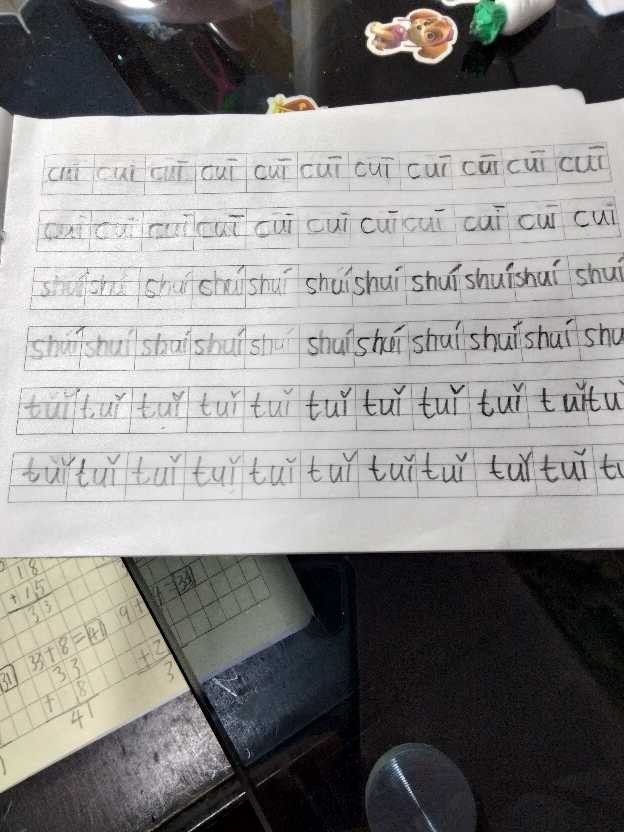 cuī cuī cuī cuī cuī cuī cuī cuī cuī cuī cuī
cuī cuī cuī cuī cuī cuī cuī cuī cuī cuī cuī
shuí shuí shuí shuí shuí shuí shuí shuí shuí shuí shuí
shuí shuí shuí shuí shuí shuí shuí shuí shuí shuí shu
tuǐ tuǐ tuǐ tuǐ tuǐ tuǐ tuǐ tuǐ tuǐ tuǐ tu
tuǐ tuǐ tuǐ tuǐ tuǐ tuǐ tuǐ tuǐ tuǐ tuǐ
18
+15
33
33+8=41
33
+ 8
41